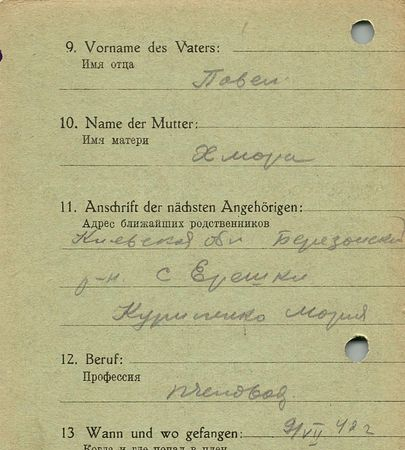 9. Vorname des Vaters:
Имя отца
Павел
10. Name der Mutter:
Имя матери
Хмара
11. Anschrift der nächsten Angehörigen:
Адрес ближайших родственников
Киевская обл Березанский
р-н. с Ерешки
Мория
12. Beruf:
Профессия
пчеловод
13 Wann und wo gefangen: 9/VII 42 г
Когда и где попал в плен